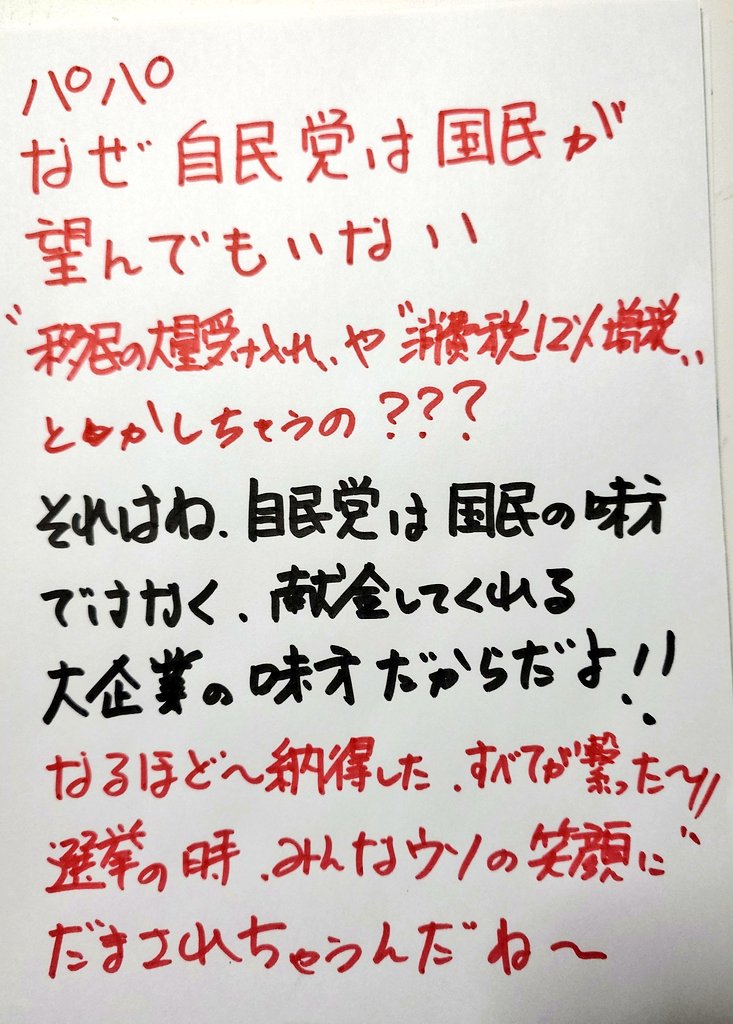 パパ
なぜ自民党は国民が
望んでもいない
〝移民の大量受け入れ〟や〝消費税12%増税〟
とかしちゃうの???
それはね、自民党は国民の味方
ではなく、献金してくれる
大企業の味方だからだよ!!
なるほど〜納得した、すべてが繋った〜!!
選挙の時、みんなウソの笑顔に
だまされちゃうんだね〜